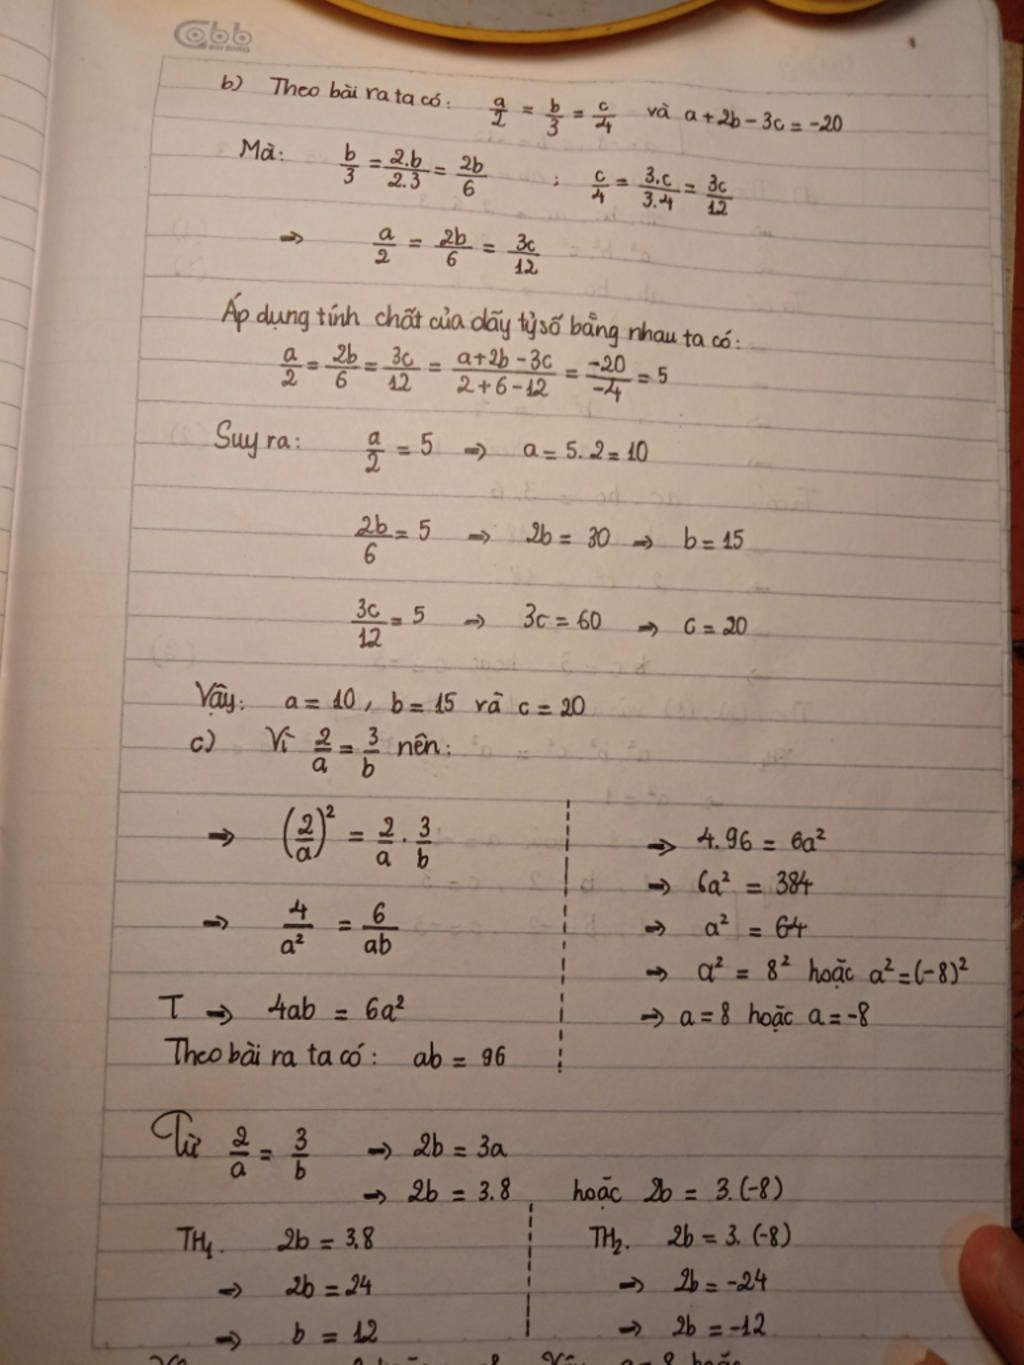 abb
b) Theo bài ra ta có: a/2 = b/3 = c/4 và a+2b-3c = -20
Mà: b/3 = 2.b/2.3 = 2b/6 ; c/4 = 3.c/3.4 = 3c/12
⇒ a/2 = 2b/6 = 3c/12
Áp dụng tính chất của dãy tỷ số bằng nhau ta có:
a/2 = 2b/6 = 3c/12 = a+2b-3c/2+6-12 = -20/-4 = 5
Suy ra: a/2 = 5 ⇒ a = 5.2 = 10
2b/6 = 5 ⇒ 2b = 30 ⇒ b = 15
3c/12 = 5 ⇒ 3c = 60 ⇒ c = 20
Vậy: a = 10, b = 15 và c = 20
c) Vì 2/a = 3/b nên:
⇒ (2/a)² = 2/a . 3/b
⇒ 4/a² = 6/ab
T ⇒ 4ab = 6a²
Theo bài ra ta có: ab = 96
⇒ 4.96 = 6a²
⇒ 6a² = 384
⇒ a² = 64
⇒ a² = 8² hoặc a² = (-8)²
⇒ a = 8 hoặc a = -8
Từ 2/a = 3/b ⇒ 2b = 3a
⇒ 2b = 3.8 hoặc 2b = 3.(-8)
TH1. 2b = 3.8
⇒ 2b = 24
⇒ b = 12
TH2. 2b = 3.(-8)
⇒ 2b = -24
⇒ 2b = -12